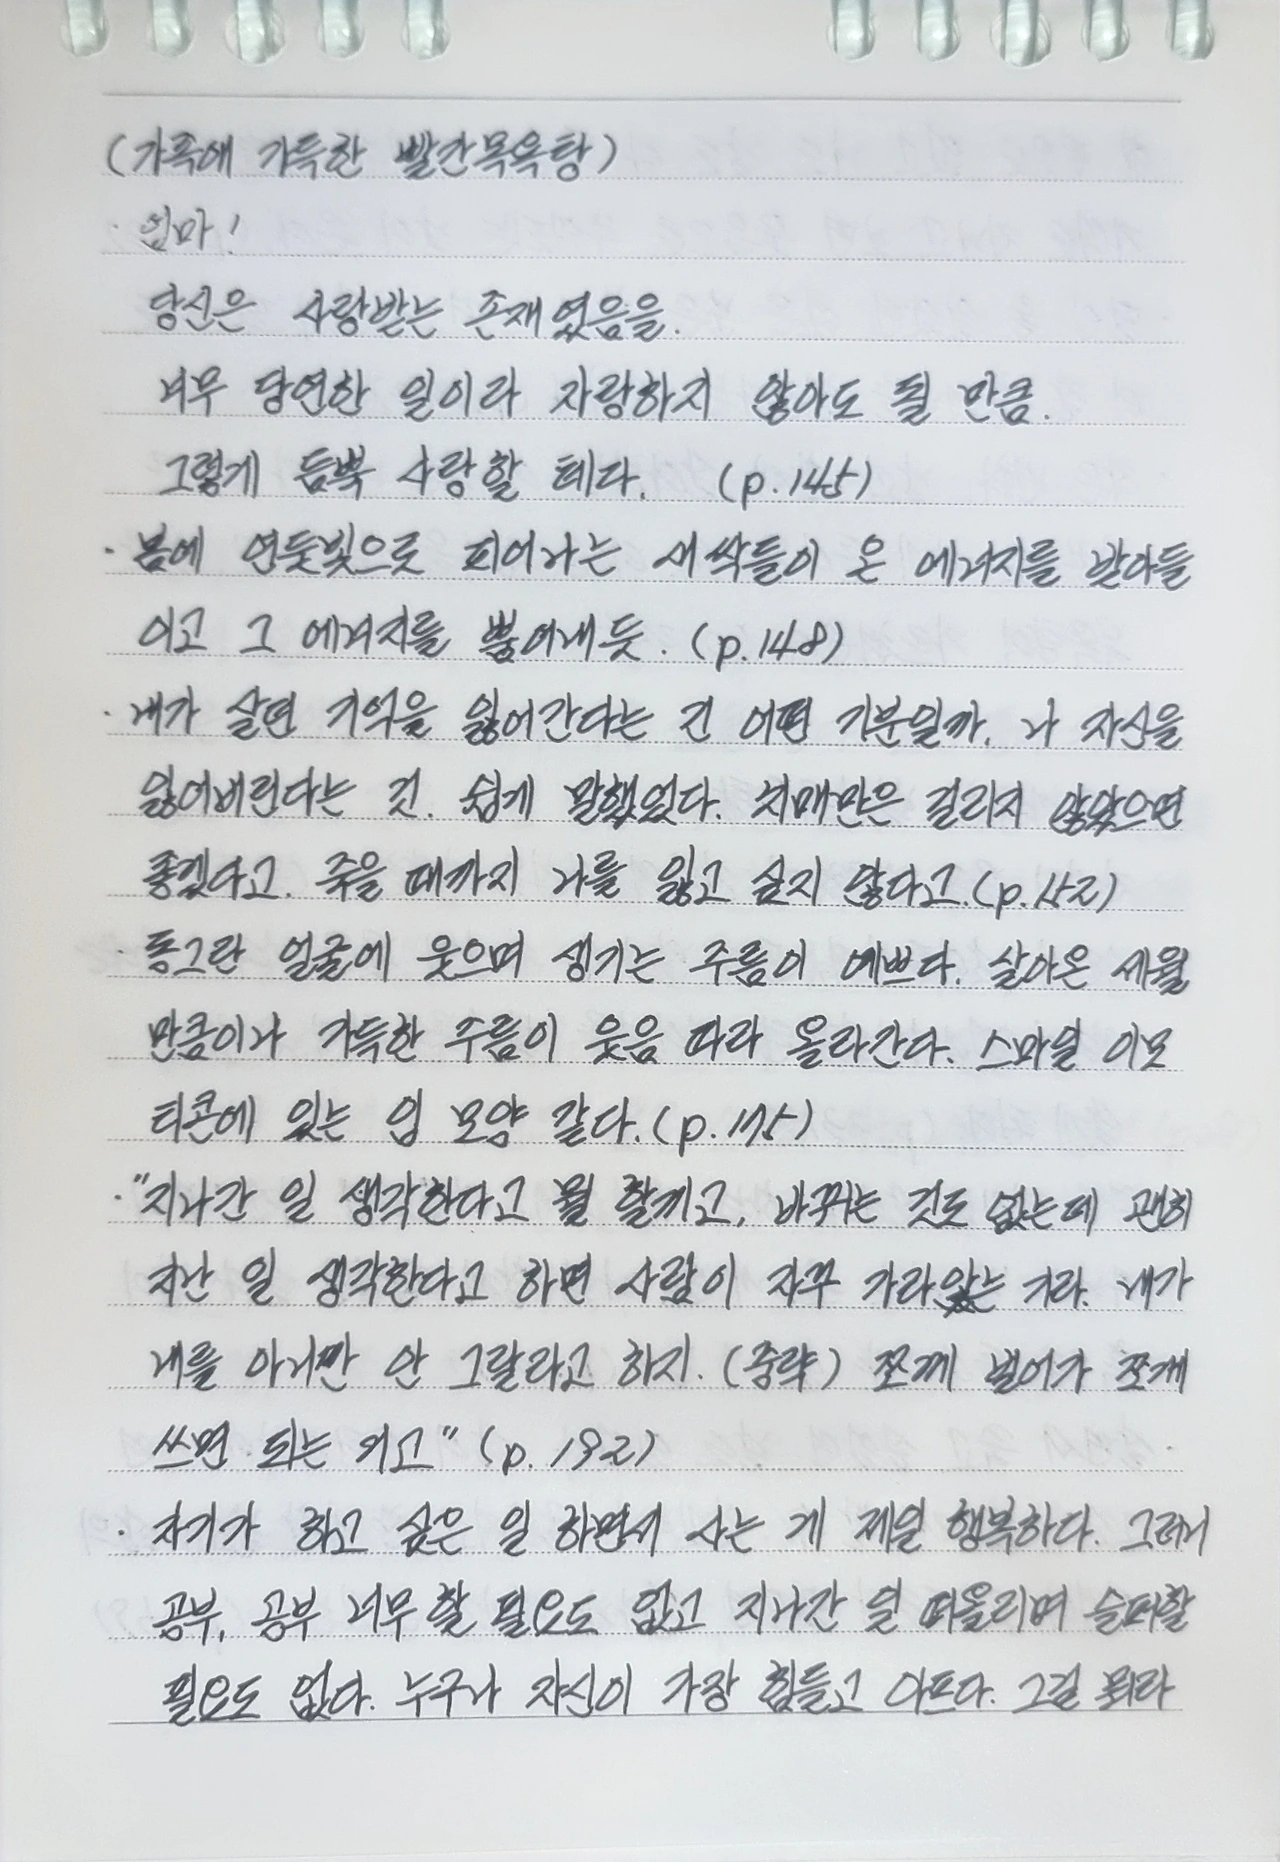 (가족애 가득한 빨간목욕탕)
· 엄마!
당신은 사랑받는 존재였음을.
너무 당연한 일이라 자랑하지 않아도 될 만큼.
그렇게 듬뿍 사랑할 테다. (p.145)
· 봄에 연둣빛으로 피어나는 새싹들이 온 에너지를 받아들
이고 그 에너지를 뿜어내듯. (p.148)
· 내가 살면 기억을 잃어간다는 건 어떤 기분일까. 나 자신을
잃어버린다는 것. 쉽게 말했었다. 치매만은 걸리지 않았으면
좋겠다고. 죽을 때까지 나를 잃고 싶지 않다고.(p.152)
· 동그란 얼굴에 웃으며 생기는 주름이 예쁘다. 살아온 세월
만큼이나 가득한 주름이 웃음 따라 올라간다. 스마일 이모
티콘에 있는 입 모양 같다.(p.175)
· "지나간 일 생각한다고 뭘 할끼고, 바뀌는 것도 없는데 괜히
지난 일 생각한다고 하면 사람이 자꾸 가라앉는 기라. 내가
내를 아니깐 안 그랄라고 하지. (중략) 쪼께 벌어가 쪼께
쓰면 되는 기고" (p. 192)
· 자기가 하고 싶은 일 하면서 사는 게 제일 행복하다. 그러니
공부, 공부 너무 할 필요도 없고 지나간 일 떠올리며 슬퍼할
필요도 없다. 누구나 자신이 가장 힘들고 아프다. 그걸 뭐라